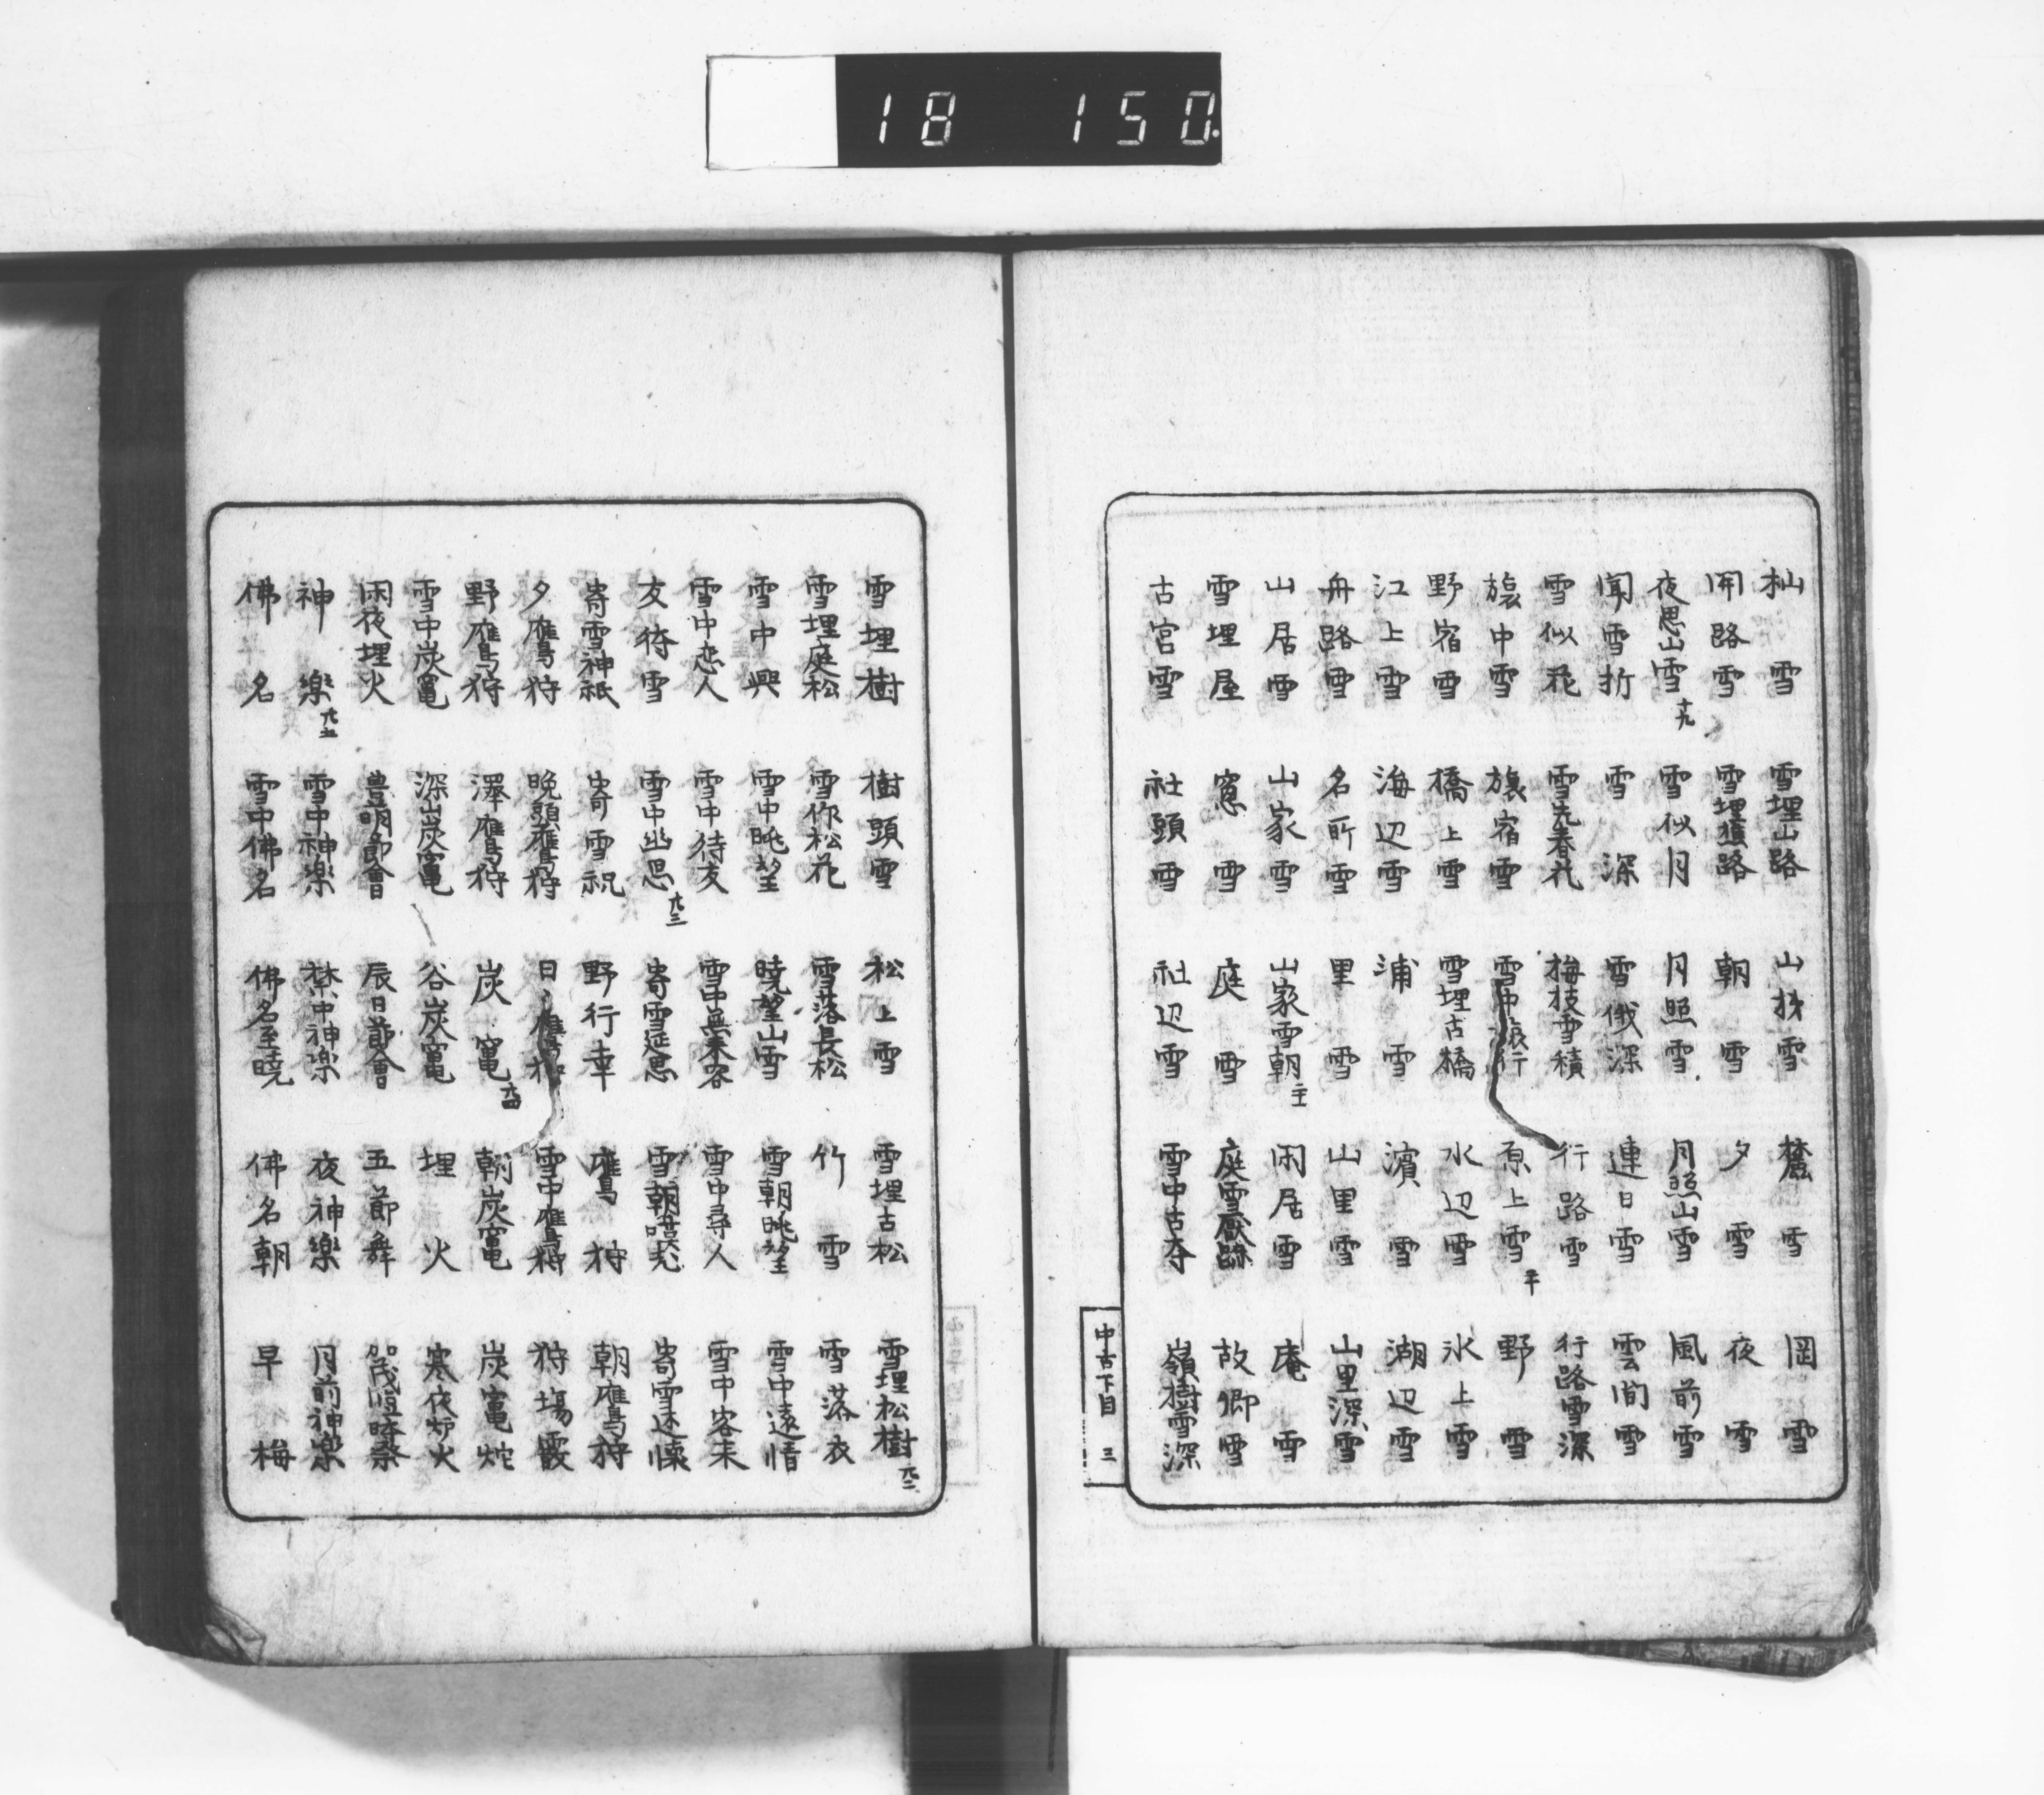 18 150
杣雪 雪埋山路 山村雪 麓雪 岡雪
関路雪 雪埋猿路 朝雪 夕雪 夜雪
夜思山雪 十九 雪似月 月照雪 月照山雪 風前雪
聞雪折 雪深 雪俄深 連日雪 雲間雪
雪似花 雪先春花 梅枝雪積 行路雪 行路雪深
旅中雪 旅宿雪 雪中旅行 原上雪 二十 野雪
野宿雪 橋上雪 雪埋古橋 水辺雪 氷上雪
江上雪 海辺雪 浦雪 濱雪 湖辺雪
舟路雪 名所雪 里雪 山里雪 山里深雪
山居雪 山家雪 山家雪朝 閑居雪 庵雪
雪埋屋 窓雪 庭雪 庭雪厭跡 故郷雪
古宮雪 社頭雪 社辺雪 雪中古寺 嶺樹雪深
中古下目 三
雪埋樹 樹頭雪 松上雪 雪埋古松 雪埋松樹
雪埋庭松 雪作松花 雪落長松 竹雪 雪落衣
雪中興 雪中眺望 暁望山雪 雪朝眺望 雪中遠情
雪中恋人 雪中待友 雪中無来客 雪中尋人 雪中客来
友待雪 雪中幽思 寄雪述思 雪朝 寄雪述懐
寄雪神祇 寄雪祝 野行幸 鷹狩 朝鷹狩
夕鷹狩 晩頭鷹狩 日々鷹狩 雪中鷹狩 狩場霰
野鷹狩 澤鷹狩 炭竃 朝炭竃 炭竃
雪中炭竃 深山炭竃 谷炭竃 埋火 寒夜炉火
閑夜埋火 豊明節會 辰日節會 五節舞 加茂臨時祭
神楽 雪中神楽 禁中神楽 夜神楽 月前神楽
佛名 雪中佛名 佛名至暁 佛名朝 早梅